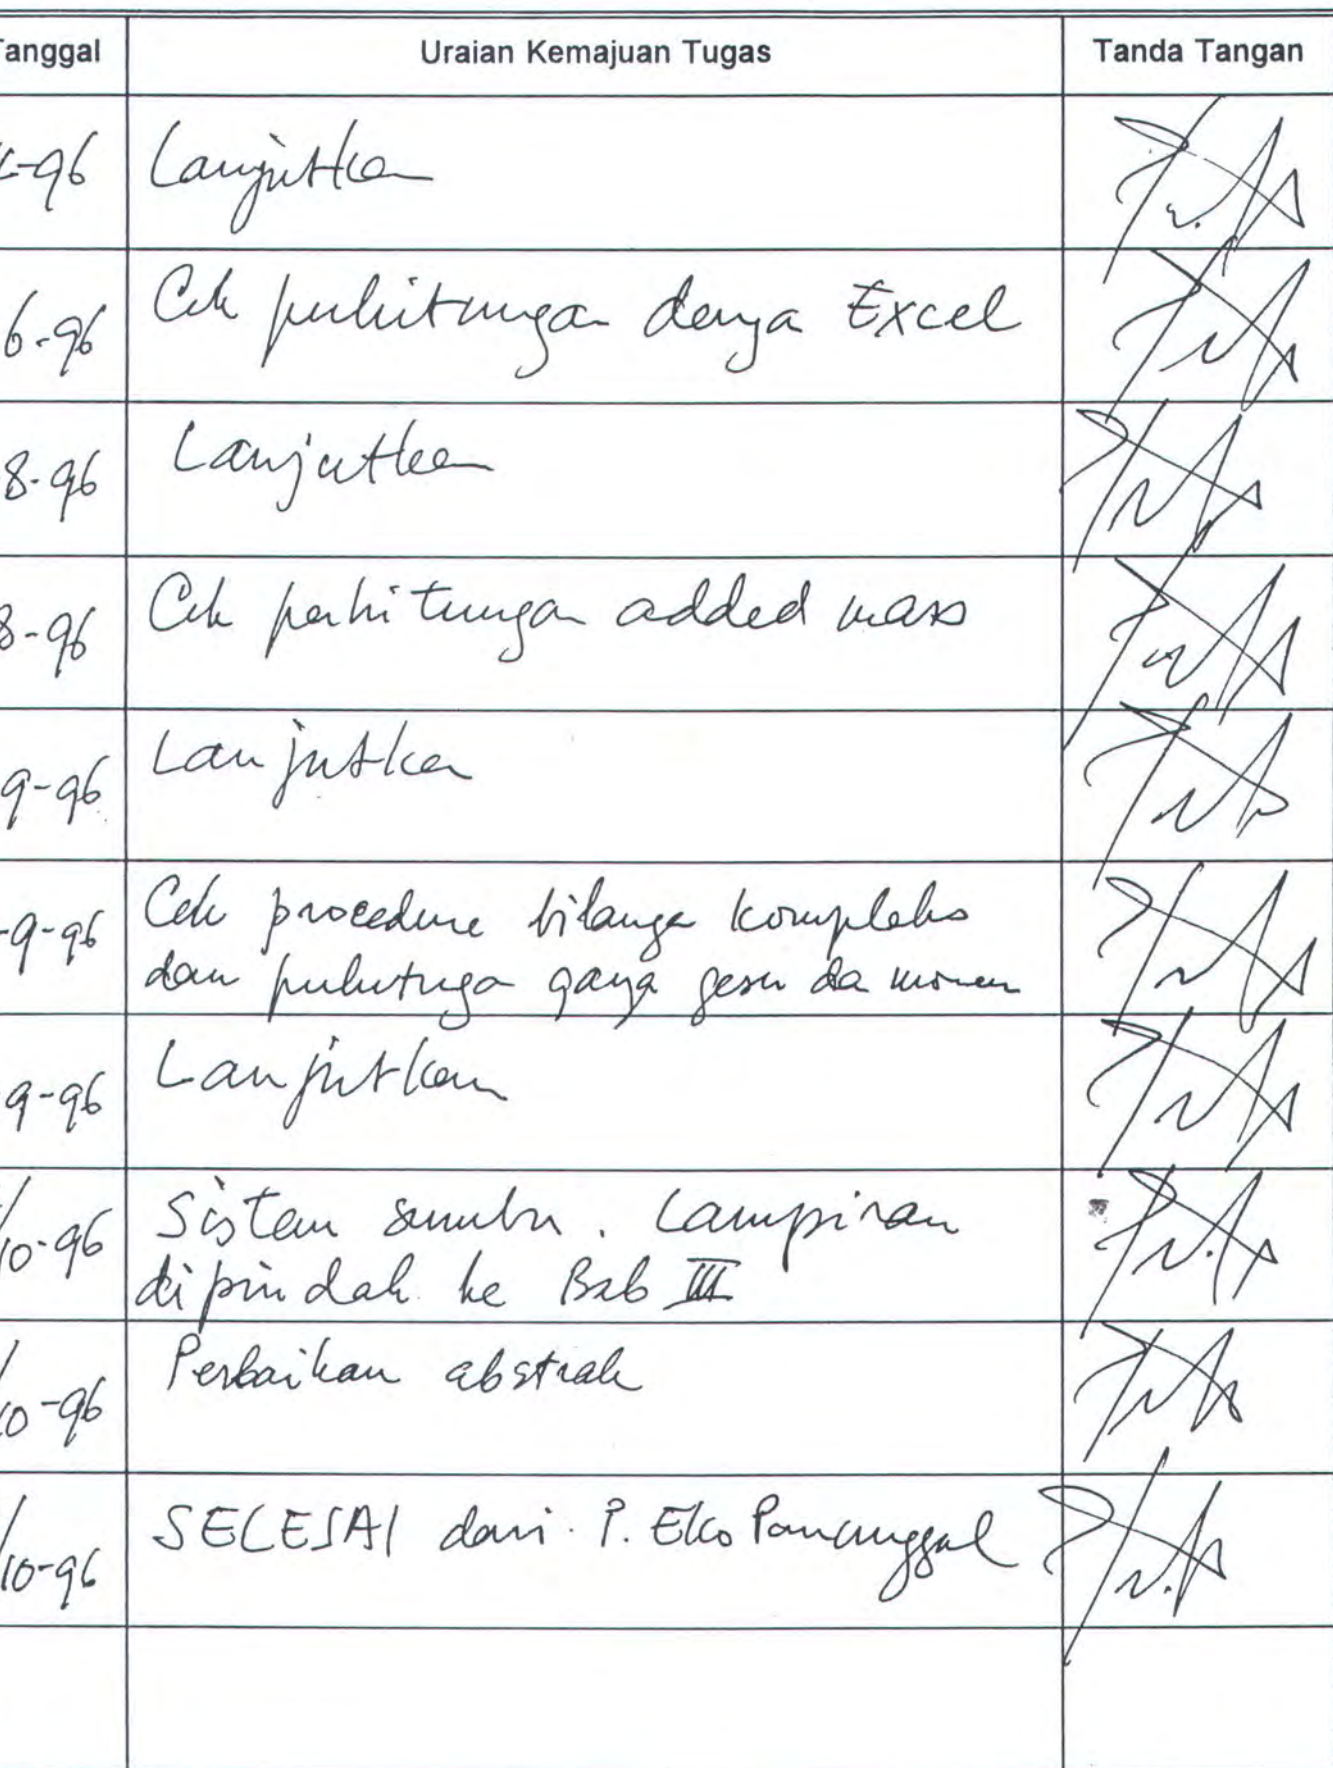 Tanggal Uraian Kemajuan Tugas Tanda Tangan
-96 Lanjutkan
6-96 Cek perhitungan dengan Excel
8-96 Lanjutkan
8-96 Cek perhitungan added mass
9-96 Lanjutkan
-9-96 Cek procedure bilangan kompleks
dan perhitungan gaya geser dan momen
9-96 Lanjutkan
/10-96 Sistem sumbu. Lampiran
dipindah ke Bab III
/10-96 Perbaikan abstrak
/10-96 SELESAI dari P. Eko Panunggal